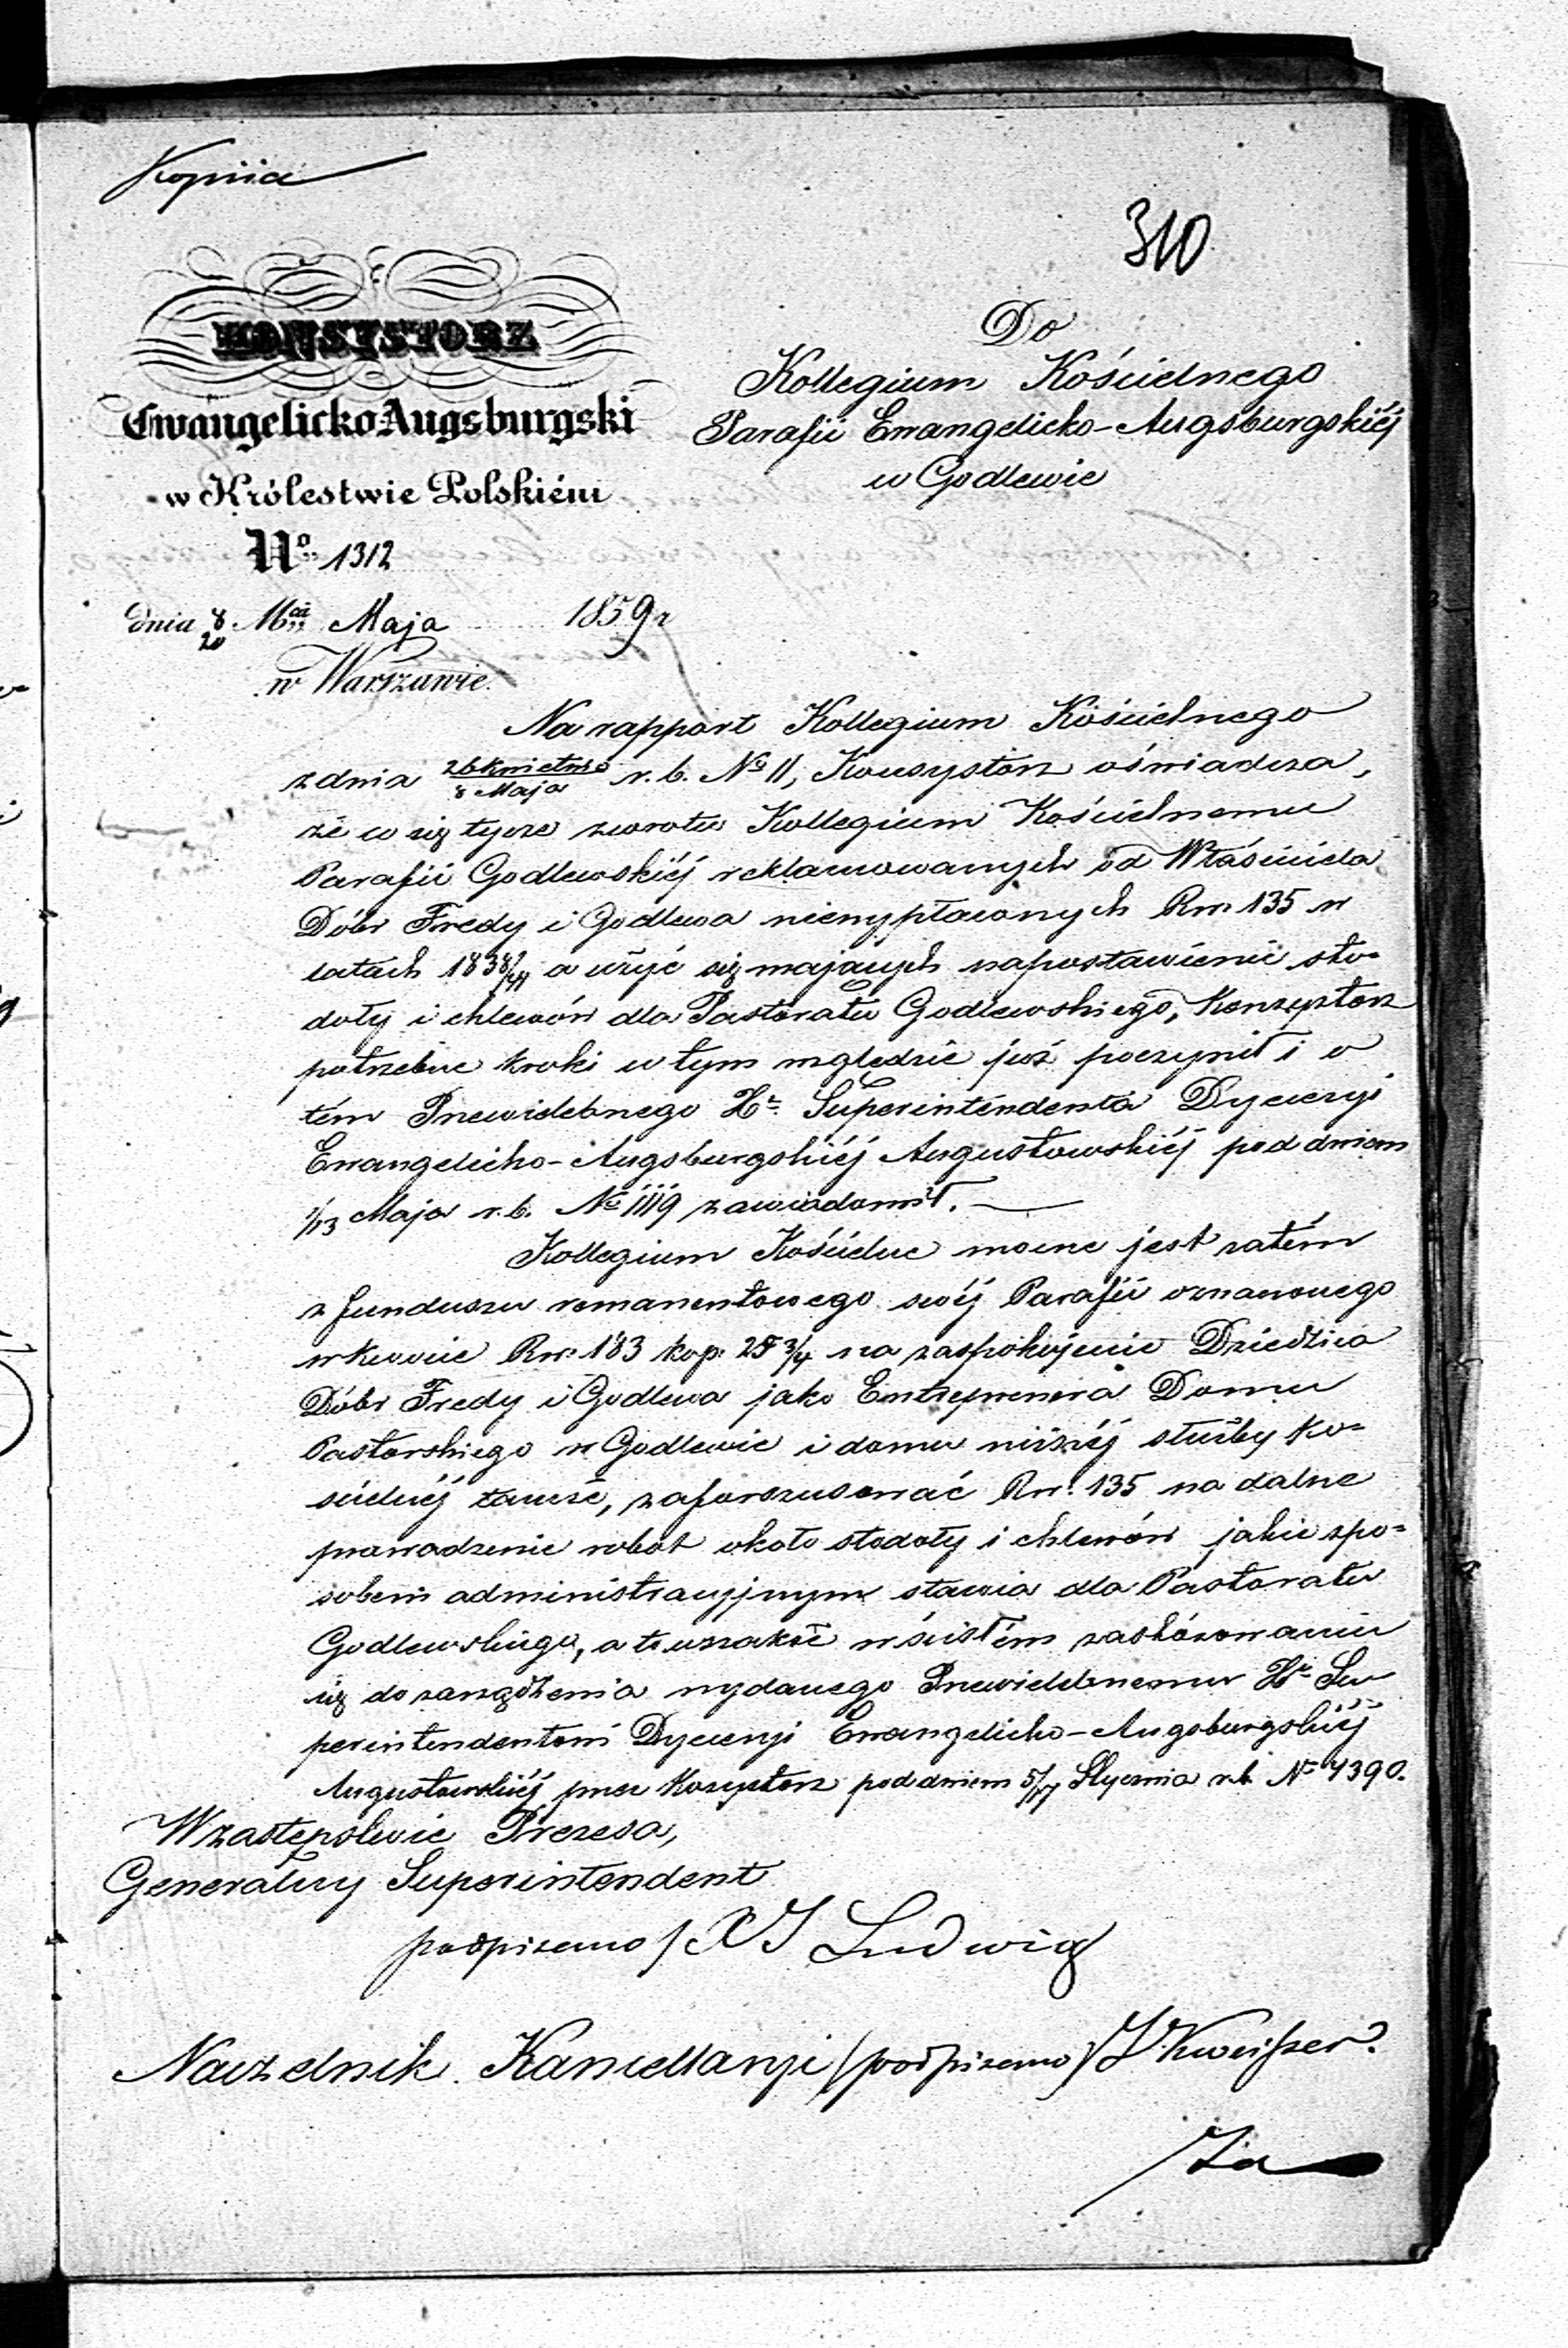 Kopiia
310
KONSYSTORZ
Ewangelicko Augsburgski
w Królestwie Polskiém
No 1312
dnia 8/20 Mca Maja 1859 r
w Warszawie.
Do
Kollegium Kościelnego
Parafii Ewangelicko-Augsburgskiéj
w Godlewie
Na rapport Kollegium Kościelnego
z dnia 26 kwietnia/8 Maja r. b. No 11, Konsystorz oświadcza,
że co się tycze zwrotu Kollegium Kościelnemu
Parafii Godlewskiéj reklamowanych od Właściciela
Dóbr Fredy i Godlewa niewypłaconych Rsr. 135 w
latach 1838/41 a użyć się mających na postawienie sto-
doły i chlewów dla Pastoratu Godlewskiego, Konsystorz
potrzebne kroki w tym względzie już poczynił i o
tém Przewielebnego Hr. Superintendenta Dyecezyi
Ewangelicko-Augsburgskiéj Augustowskiéj pod dniem
1/13 Maja r. b. No 1119 zawiadomił. —
Kollegium Kościelne mocne jest zatém
z funduszu remanentowego swéj Parafii oznaczonego
w kwocie Rsr. 183 kop. 3/4 na zaspokojenie Dziedzica
Dóbr Fredy i Godlewa jako Entreprenera Domu
Pastorskiego w Godlewie i domu niższéj służby ko-
ścielnéj tamże, zaforszusować Rsr. 135 na dalsze
prowadzenie robot około stodoły i chlewów jakie spo-
sobem administracyjnym stawia dla Pastoratu
Godlewskiego, a to wszakże w ścisłém zastósowaniu
się do zarządzenia wydanego Przewielebnemu Hr. Su-
perintendentowi Dyecezyi Ewangelicko-Augsburgskiéj
Augustowskiéj przez Konsystorz pod dniem 5/17 Stycznia r. b. No 4390.
W zastępstwie Prezesa,
Generalny Superintendent
podpisano / X J Ludwig
Naczelnik Kancellaryi / podpisano /
Za